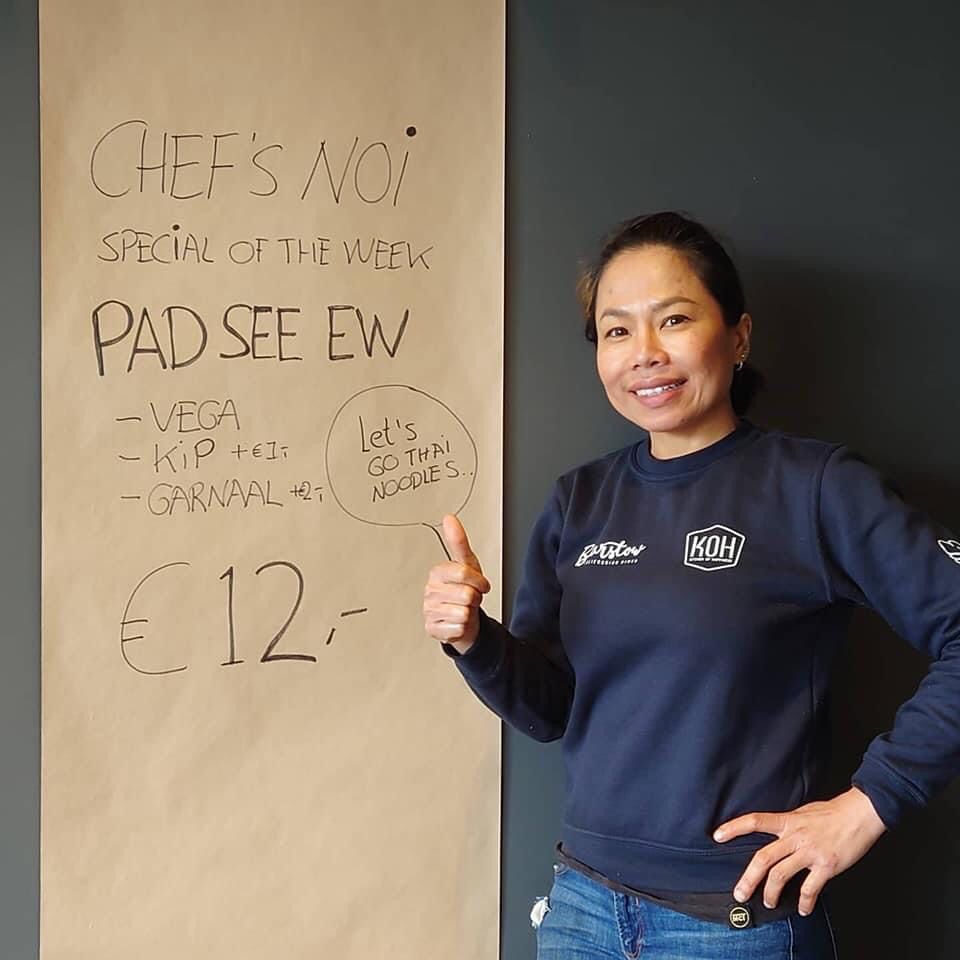 CHEF'S NOi
SPECiAL OF THE WEEK
PAD SEE EW
- VEGA
- KiP +€1,-
- GARNAAL +€2,-
Let's
GO THAI
NOODLES..
€12,-
Barstow
KOH
KITCHEN OF HAPPINESS